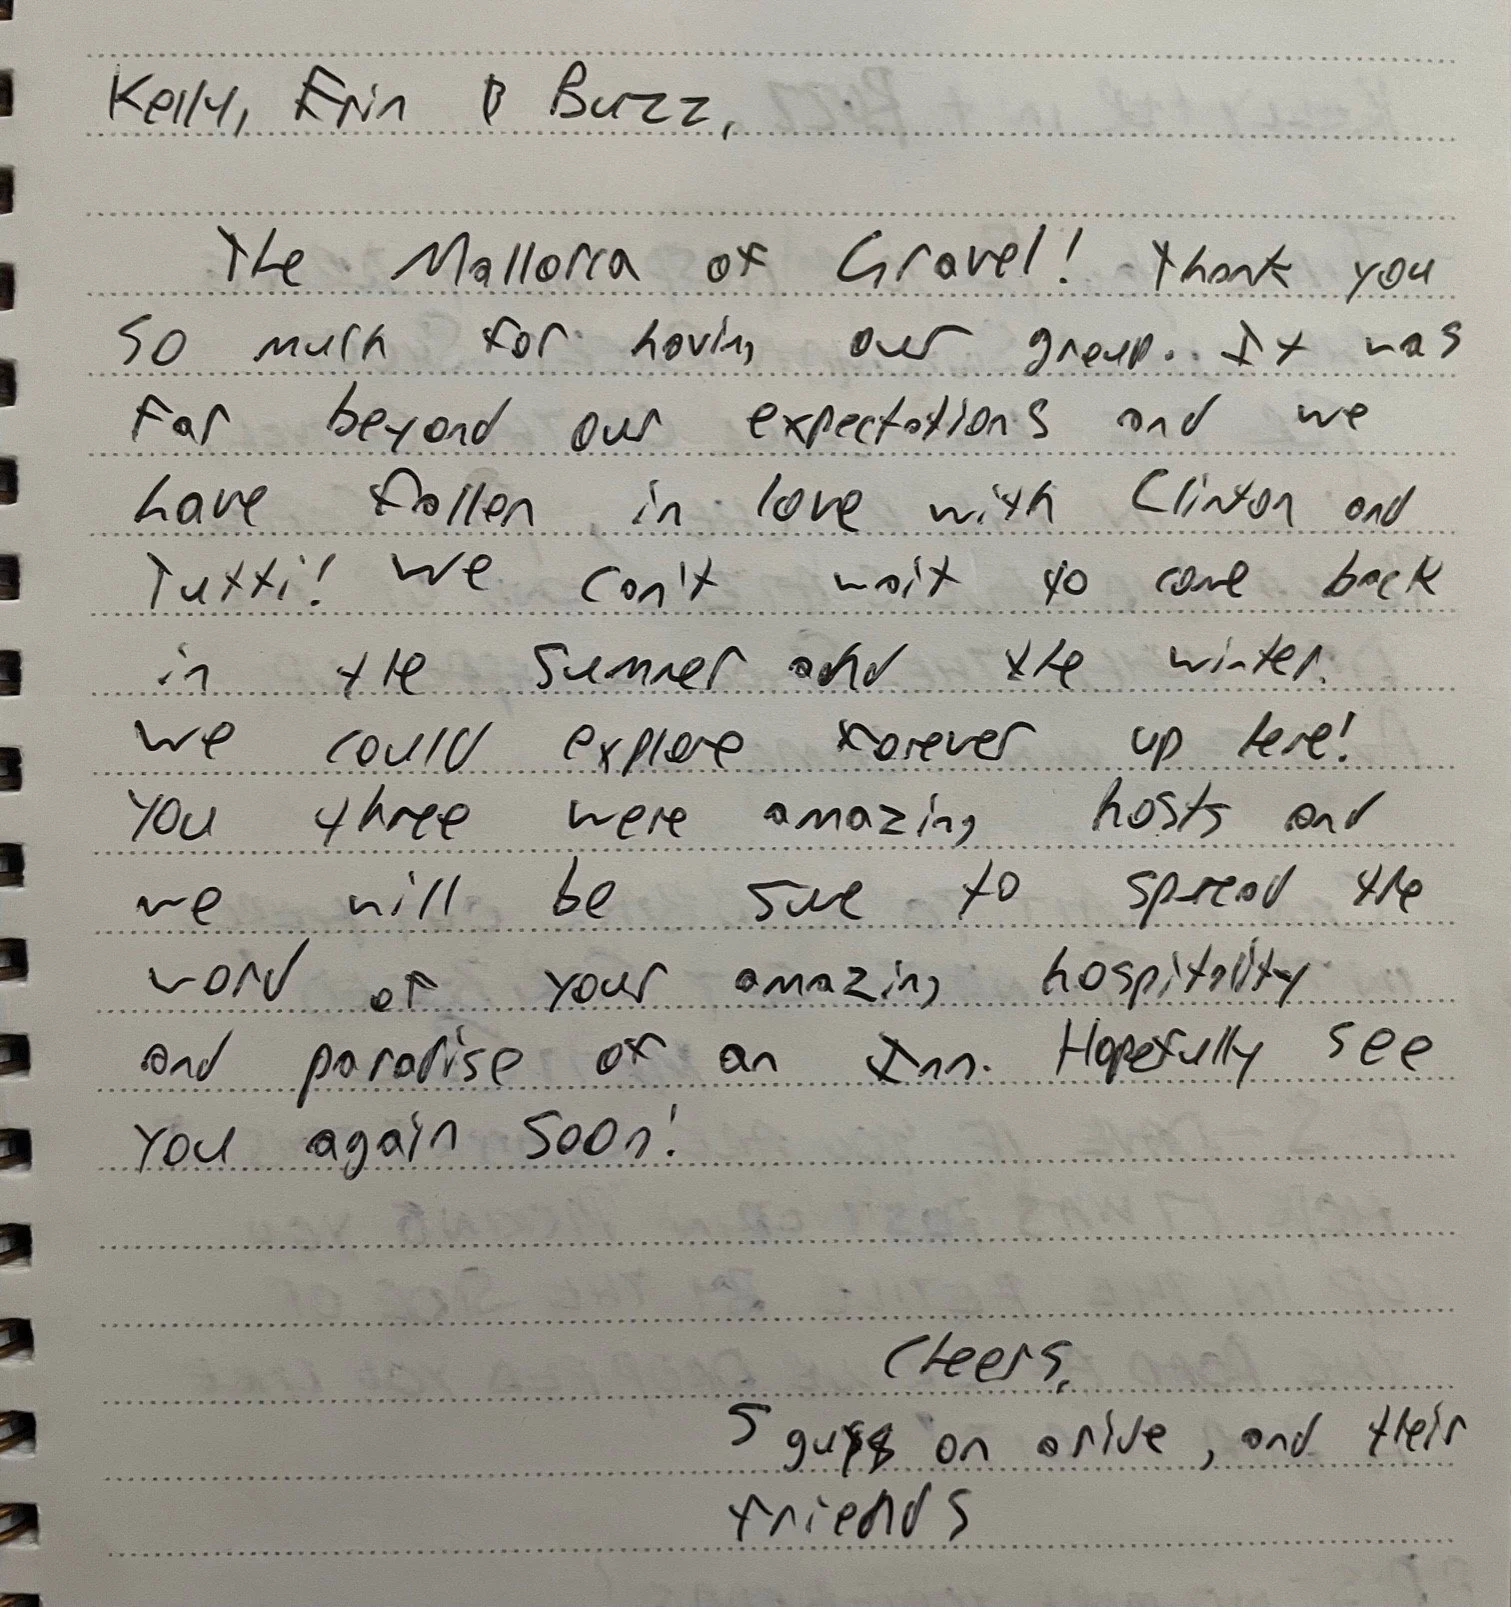 Kelly, Erin & Buzz,
The Mallorca of Gravel! Thank you
so much for having our group. It was
far beyond our expectations and we
have fallen in love with Clinton and
Tutti! We can't wait to come back
in the summer and the winter.
We could explore forever up here!
You three were amazing hosts and
we will be sure to spread the
word of your amazing hospitality
and paradise of an Inn. Hopefully see
you again soon!
Cheers,
5 guys on a ride, and their
friends